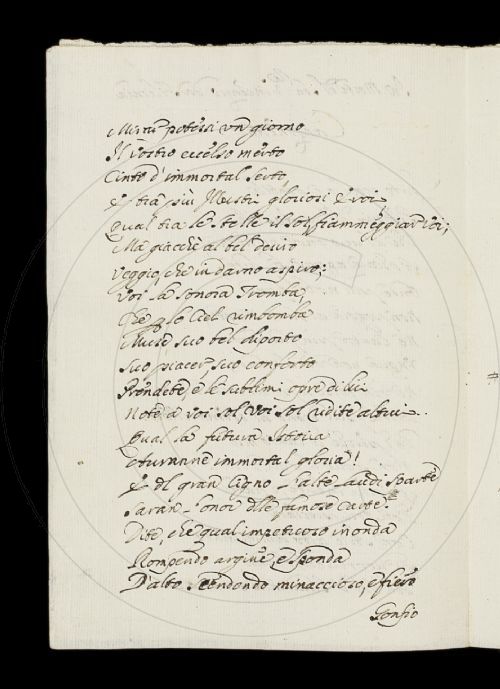 potessi un giorno
Il vostro eccelso merto
Cinto d'immortal serto,
E tra più Illustri gloriosi Eroi,
Qual tra le stelle il sol, fiammeggiar
Ma giacche al bel
Veggio, che indarno aspiro;
Voi la sonora Tromba,
Che il Ciel rimbomba
suo bel diporto
Suo piacer, suo conforto
Prendete, e le sublimi opre di lui
Note a voi sol, voi sol udite altrui.
Qual la futura Istoria
immortal gloria!
E del gran Cigno
Saran l'onor delle famose carte.
Dite, che qual impetuoso inonda
Rompendo argine, e sponda
D'alto scendendo minaccioso, e fiero
Gonfio